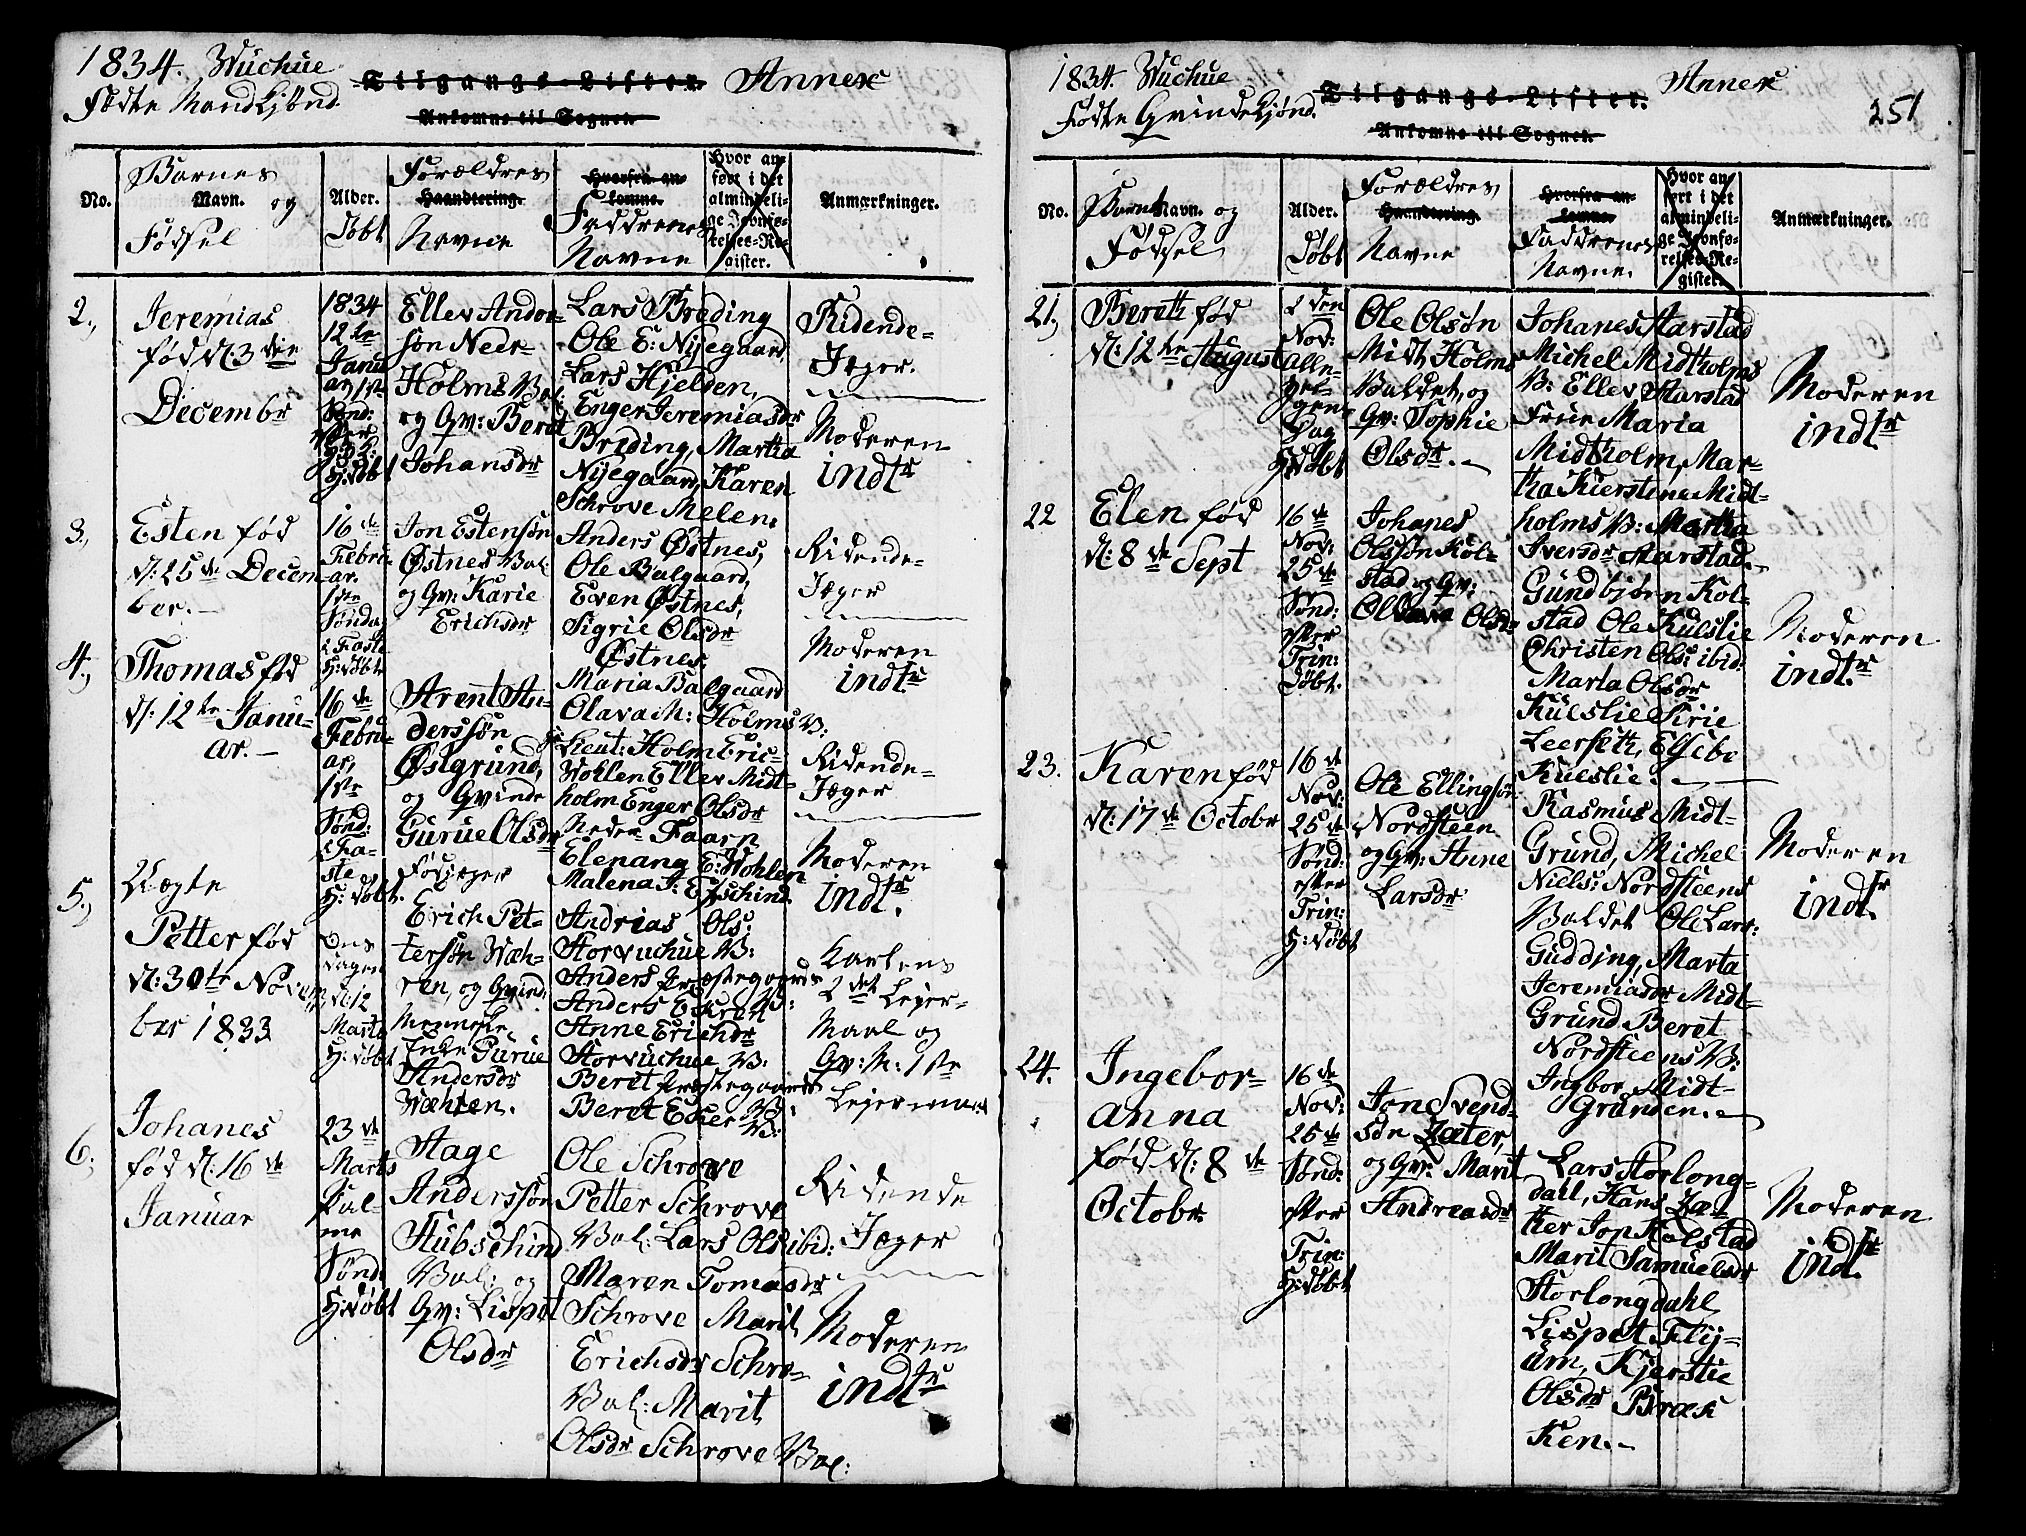 1834. Wuchue
Tilgangs-Lister
Annex
Fødte Mandkjønd.
Ankomne til Sognet
No.
Barnes
Navn. og
Fødsel
Alder.
Døbt
Forældres
Haandtering.
Navne
Hvorfra an-
komne.
Faddrenes
Navne
Hvor an-
ført i det
almindeli-
ge Jevnfø-
relses-Re-
gister.
Anmærkninger.
2.,
Jeremias
fød d: 3 die
Decembr
1834
12te
Janu
ar 1ste
Sønd:
efter
H: 3 K:
H: døbt
Ellev Ander-
søn Neer-
Holms Val:
og Qv: Beret
Johansdr
Lars Breding
Ole E: Nijegaard
Lars Hjelden,
Enger Jeremiasdr
Breding, Martha
Nijegaard, Karen
Schrove Melen.
Ridende-
Jæger.
Moderen
indtr
3.,
Esten fød
d: 25de Decem-
ber.-
16de
Febru-
ar.
1ste
Sønda
i Faste
H: døbt
Jon Estensøn
Østnes Val:
og Qv: Karie
Erichsdr
Anders Østnes,
Ole Balgaard,
Even Østnes,
Sigrie Olsdr
Østnes
Maria Balgaard
Ridende-
Jæger
Moderen
indtr
4.,
Thomas fød
d: 12te Janu-
ar.-
16de
Febru-
ar,
1ste
Sønd:
i Fa-
ste
H: døbt.
Arent An-
derssøn
Østgrund,
og Qvinde
Gurue Olsdr
Olava M: Holms V:
Lieut: Holm Eric-
Wohlen Ellev Midt-
holm Enger Olsdr
Neder Faarn
Elenang E: Wohlen
Malena J: Epschind
Ridende-
Jæger
Moderen
indtr.
5.,
Uægte
Petter fød
d: 30te Novem
ber 1833
Ons
dagen
d: 12
Marts
H: døbt
Fødseger
Erich Pet-
tersøn Wæh-
ren, og Qvind:
Menneske,
Enke Gurue
Andersdr
Wæhren.
Andrias Ols:
Storvuchue V:
Anders Præstegaards
Anders Ekren V:
Anne Erichdr
Storvuchue V:
Beret Præstegaards
Beret Eker V:
Karlens
2det Lejer-
Maal og
Qv: M: 1ste
Lejermaal
6.,
Johanes
fød d: 16de
Januar
23de
Marts
Pal-
me
Sønd:
H: døbt
Aage
Anderssøn
Hubschind
Val: og
Qv: Lispet
Olsdr
Ole Schrove
Petter Schrove
Val: Lars Ols ibid:
Maren Tomasdr
Schrove Marit
Erichsdr Schro-
Val: Marit
Olsdr Schrove Val:
Ridende
Jæger
Moderen
indtr
1834. Wuchue
Tilgangs-Lister.
Annex
251
Fødte Qvindekjønd.
Ankomne til Sognet.
No.
Barnets Navn. og
Fødsel
Alder.
Døbt
Forældres
Haandtering.
Navne
Hvorfra an-
komne.
Faddrenes
Navne.
Hvor an-
ført i det
almindeli-
ge Jevnfø-
relses-Re-
gister.
Anmærkninger.
21,
Bereth fød
d: 12te August
2den
Nov:
Alle-
hel-
gens
Dag
H: døbt
Ole Olsøn
Midt Holms
Valdet, og
Qv: Sophie
Olsdr.-
Johanes Aarstad
Michel Midtholms
V: Ellev Aarstad
Frue Maria
Midtholm, Mar-
tha Kierstina Midt-
holms V: Martha
Iversdr Aarstad.-
Moderen
indtr
22
Elen fød
d: 8de Sept
16de
Nov:
25de
Sønd:
efter
Trin:
døbt.
Johanes
Olssøn Kol-
stad og Qv:
Olava Olsdr
Gundbjørn Kol-
stad Ole Kulslie
Christen Ols: ibid:
Marta Olsdr
Kulslie Sirie
Leerseth, Elsebe
Kulslie.
Moderen
indtr.
23.
Karen fød
d: 17de Octobr
16de
Nov:
25de
Sønd:
efter
Trin:
H: døbt
Ole Ellingsøn
Nordsteen
og Qv: Anne
Larsdr
Rasmus Midt-
Grund, Michel
Niels: Nordsteens
Valdet Ole Lars:
Gudding, Marta
Jeremiasdr Midt-
Grund Beret
Nordsteens V:
Ingbor Midt-
Grunden.
Moderen
indtr.
24.
Ingebor-
anna
fød d: 8de
Octobr
16de
Nov:
25de
Sønd:
efter
Trin:
H: døbt
Jon Svend-
søn Zæter,
og Qv: Marit
Andreasdr
Lars Storlong-
dahl, Hans Zæ-
ther Jon Kolstad
Marit Samuelsdr
Storlongdahl
Lispet Flij-
um, Kjerstie
Olsdr Bræk
ken.-
Moderen
indtr.